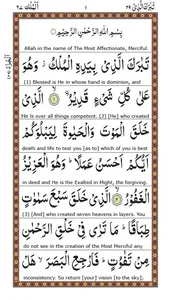 تَبٰرَكَ الَّذِیْ ٢٩
اَلْمُلْك ٦٧
بِسْمِ اللّٰهِ الرَّحْمٰنِ الرَّحِیْمِ
Allah in the name of The Most Affectionate, Merciful.
تَبٰرَكَ الَّذِیْ بِیَدِهِ الْمُلْكُ وَهُوَ
(1) Blessed is He in whose hand is dominion, and
عَلٰی كُلِّ شَیْءٍ قَدِیْرُ ۙ الَّذِیْ
He is over all things competent. (2) [He] who created
خَلَقَ الْمَوْتَ وَالْحَیٰوةَ لِیَبْلُوَكُمْ
death and life to test you [as to] which of you is best
اَیُّكُمْ اَحْسَنُ عَمَلًا ؕ وَهُوَ الْعَزِیْزُ
in deed and He is the Exalted in Might, the forgiving.
الْغَفُوْرُ ۙ الَّذِیْ خَلَقَ سَبْعَ سَمٰوٰتٍ
(3) [And] who created seven heavens in layers. You
طِبَاقًا ؕ مَا تَرٰی فِیْ خَلْقِ الرَّحْمٰنِ
do not see in the creation of the Most Merciful any
مِنْ تَفٰوُتٍ ؕ فَارْجِعِ الْبَصَرَ ۙ هَلْ
inconsistency. So return [your] vision [to the sky];